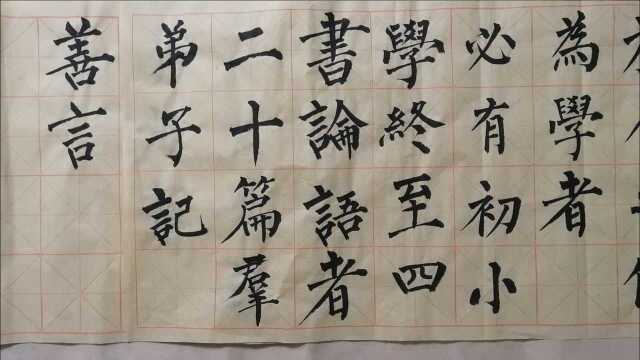 為學者
必有初小
學終至四
書論語者
二十篇羣
弟子記
善言